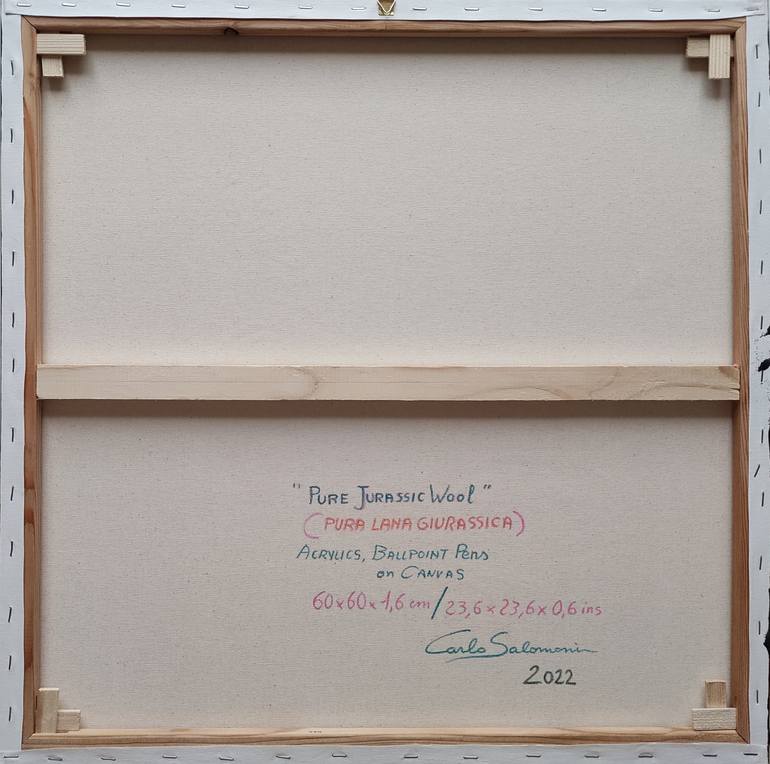 "Pure Jurassic Wool"
(PURA LANA GIURASSICA)
Acrylics, Ballpoint Pens
on Canvas
60x60x1,6 cm/23,6x23,6x0,6 ins
Carlo Salomoni
2022